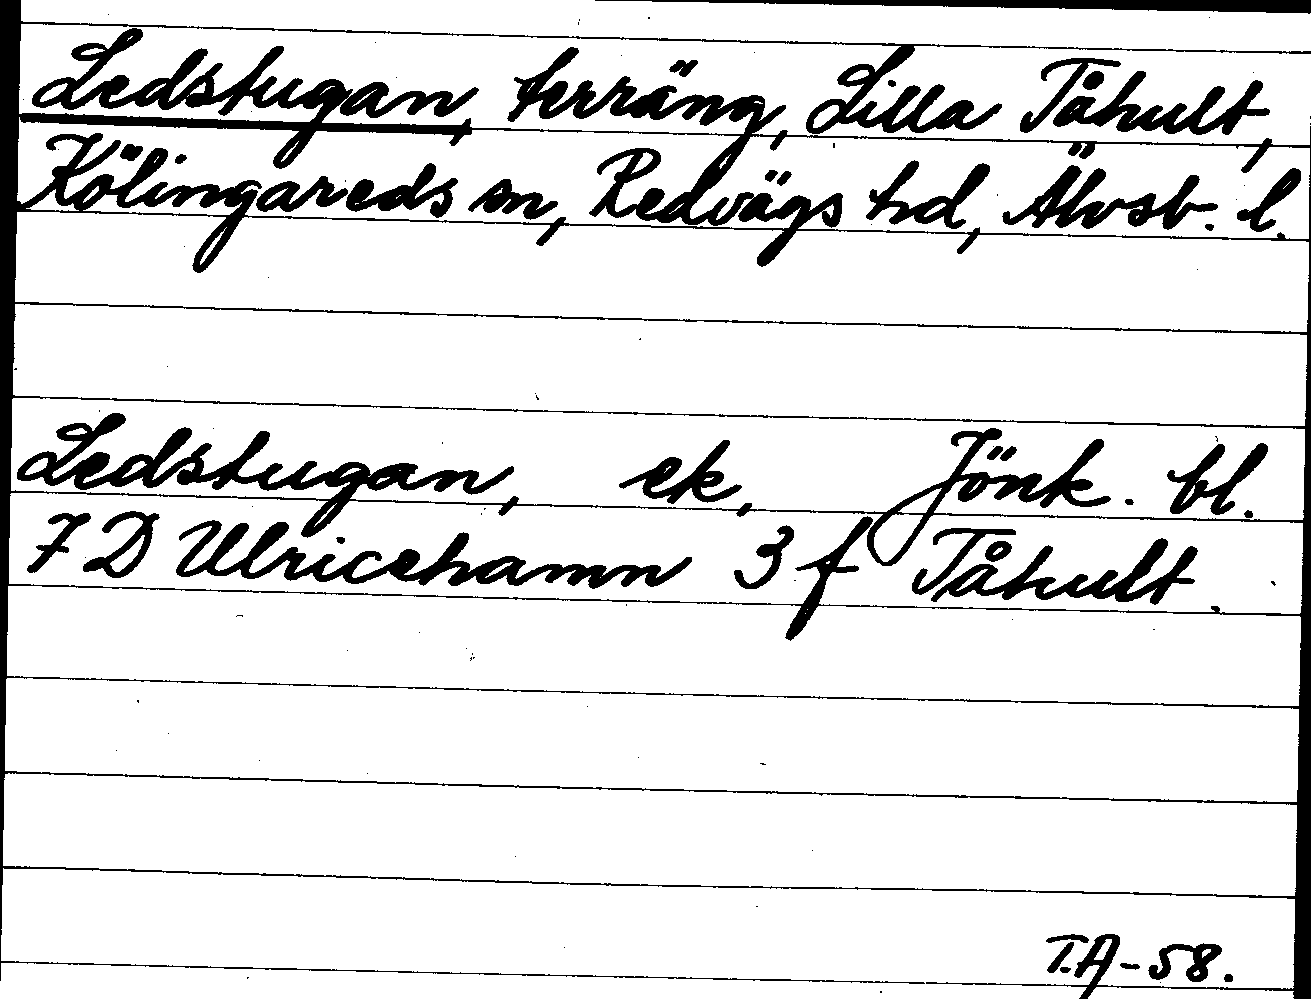 Ledstugan, terräng, Lilla Tåhult,
Kölingareds sn, Redvägs hd, Älvsb. l.
Ledstugan, ek, Jönk. bl.
7 D Ulricehamn 3 f Tåhult.
T.A-58.